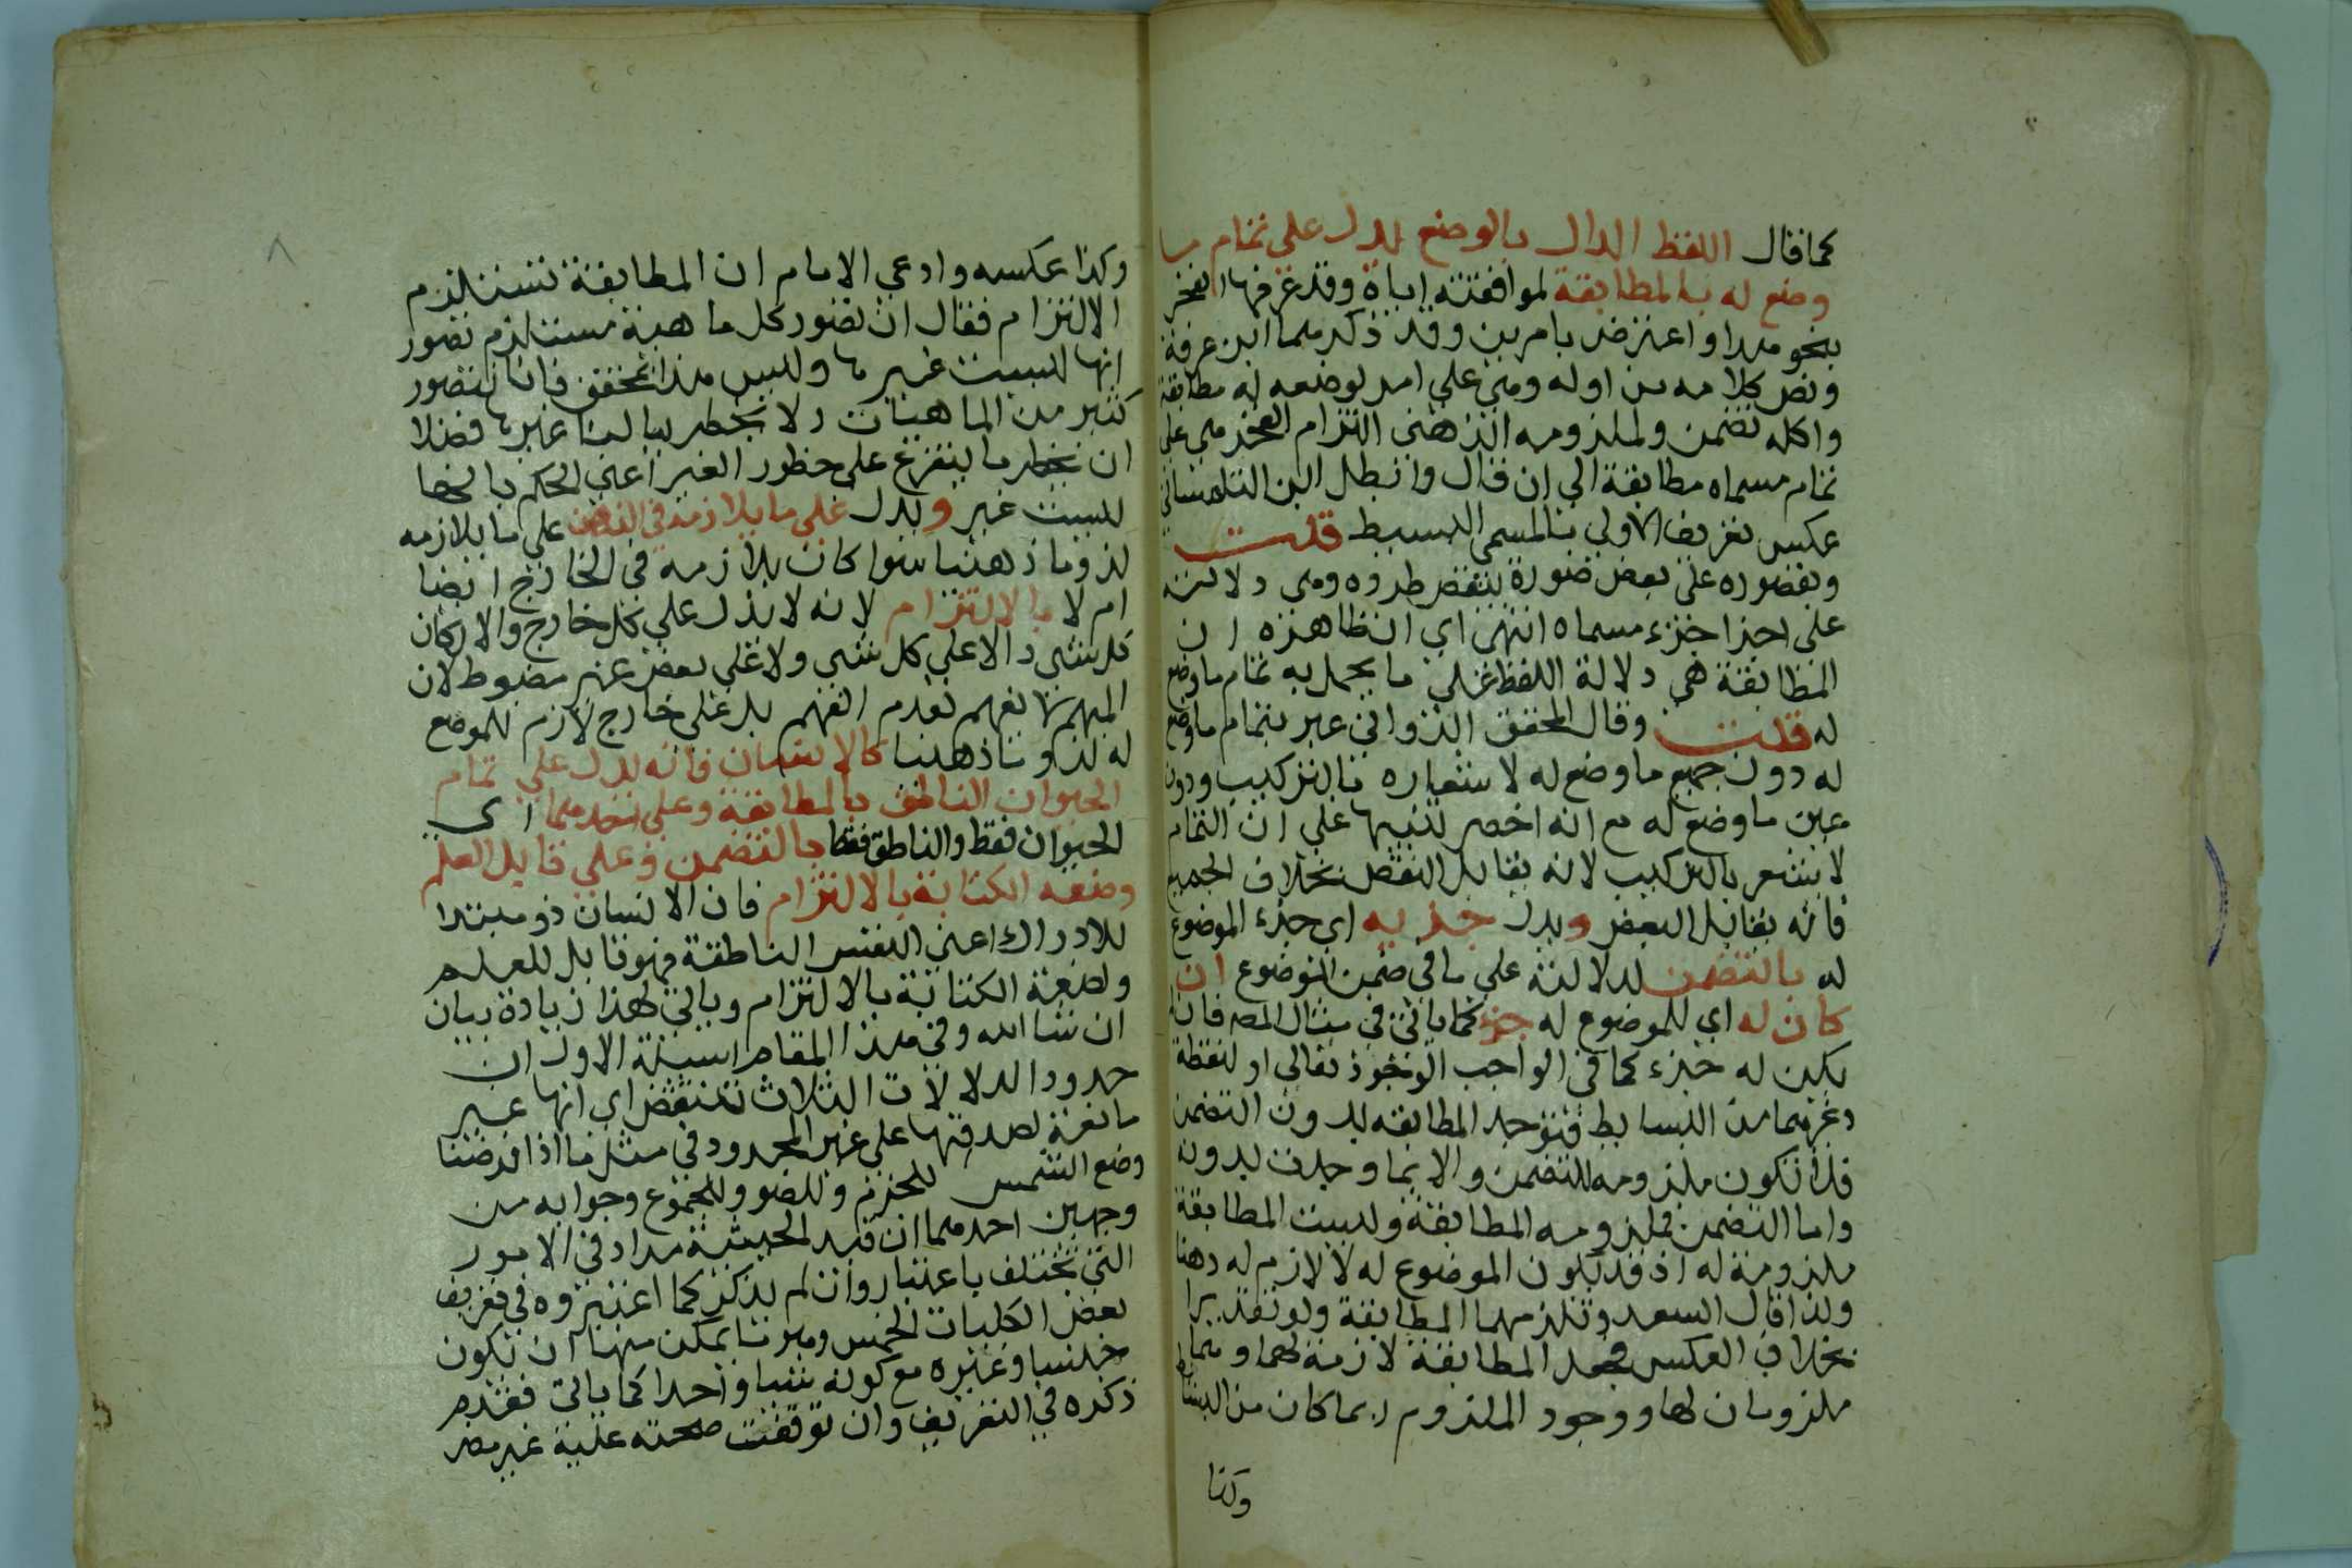 كما قال اللفظ الدال بالوضع يدل على تمام ما
وضع له بالمطابقة لموافقته اياه وقد عرفها الفخر
بنحو هذا واعترض بامرين وقد ذكرهما ابن عرفة
ونص كلامه من اوله وهي على امر لوضعه له مطابقة
واكله تضمن ولملزومه الذهني التزام الفخر هي على
تمام مسماه مطابقة الى ان قال وابطل ابن التلمساني
عكس تعريف الاولى بالمسمى البسيط قلت
وبقصوره على بعض صورة ينقض طرده وهي دلالته
على احد اجزء مسماه انتهى اي ان ظاهره ان
المطابقة هي دلالة اللفظ على ما يحمل به تمام ما وضع
له قلت وقال المحقق الدواني عبر بتمام ما وضع
له دون جميع ما وضع له لاشعاره بالتركيب ودون
عين ما وضع له مع انه اخصر تنبيها على ان التمام
لا يشعر بالتركيب لانه يقابل النقص بخلاف الجميع
فانه يقابل البعض ويدل جزيه اي جزء الموضوع
له بالتضمن لدلالته على ما في ضمن الموضوع ان
كان له اي للموضوع له جزء كما ياتي في مثال المص فان لم
يكن له جزء كما في الواجب الوجود تعالى او لنقطة
وغيرهما من البسايط فتوجد المطابقه بدون التضمن
فلا تكون ملزومه للتضمن والا لما وجدت بدونه
واما التضمن فملزومه المطابقة وليست المطابقة
ملزومة له اذ قد يكون الموضوع له لا لازم له ذهنا
ولذا قال السعد وتلزمهما المطابقة ولو تقديرا
بخلاف العكس فجعل المطابقة لازمة لهما وهما
ملزومان لها ووجود الملزوم ربما كان من البسايط
وكذا
وكذا عكسه وادعى الامام ان المطابقة تستلزم
الالتزام فقال ان تصور كل ماهية مستلزم تصور
انها ليست غيرها وليس هذا بمحقق فانا نتصور
كثير من الماهيات ولا يخطر ببالنا غيرها فضلا
ان يخطر ما يتفرع على خطور الغير اعني الحكم بانها
ليست غير ويدل على ما يلازمه في الذهن على ما يلازمه
لزوما ذهنيا سوا كان يلازمه في الخارج ايضا
ام لا بالالتزام لانه لا يدل على كل خارج والا لكان
كل شي دالا على كل شي ولا على بعض غير مضبوط لان
المبهم بها يفهم بعدم الفهم بل على خارج لازم للموضع
له لزوما ذهنيا كالانسان فانه يدل على تمام
الحيوان الناطق بالمطابقة وعلى احدهما اي
الحيوان فقط والناطق فقط بالتضمن وعلى قابل العلم
وصنعه الكتابة بالالتزام فان الانسان ذو مبتدا
للادراك اعني النفس الناطقة فهو قابل للعلم
ولصنعة الكتابة بالالتزام وياتي لهذا زيادة بيان
ان شا الله وفي هذا المقام اسيلة الاول ان
حدود الدلالات الثلاث تنتقض اي انها غير
مانعة لصدقها على غير المحدود في مثل ما اذا فرضنا
وضع الشمس للجرم وللضو وللمجموع وجوابه من
وجهين احدهما ان قيد الحيثية مراد في الامور
التي تختلف باعتبار وان لم يذكر كما اعتبروه في تعريف
بعض الكليات الخمس وميز ما يمكن منها ان تكون
جنسا وغيره مع كونه شيا واحدا كما ياتي فعدم
ذكره في التعريف وان توقفت صحته عليه غير مضر